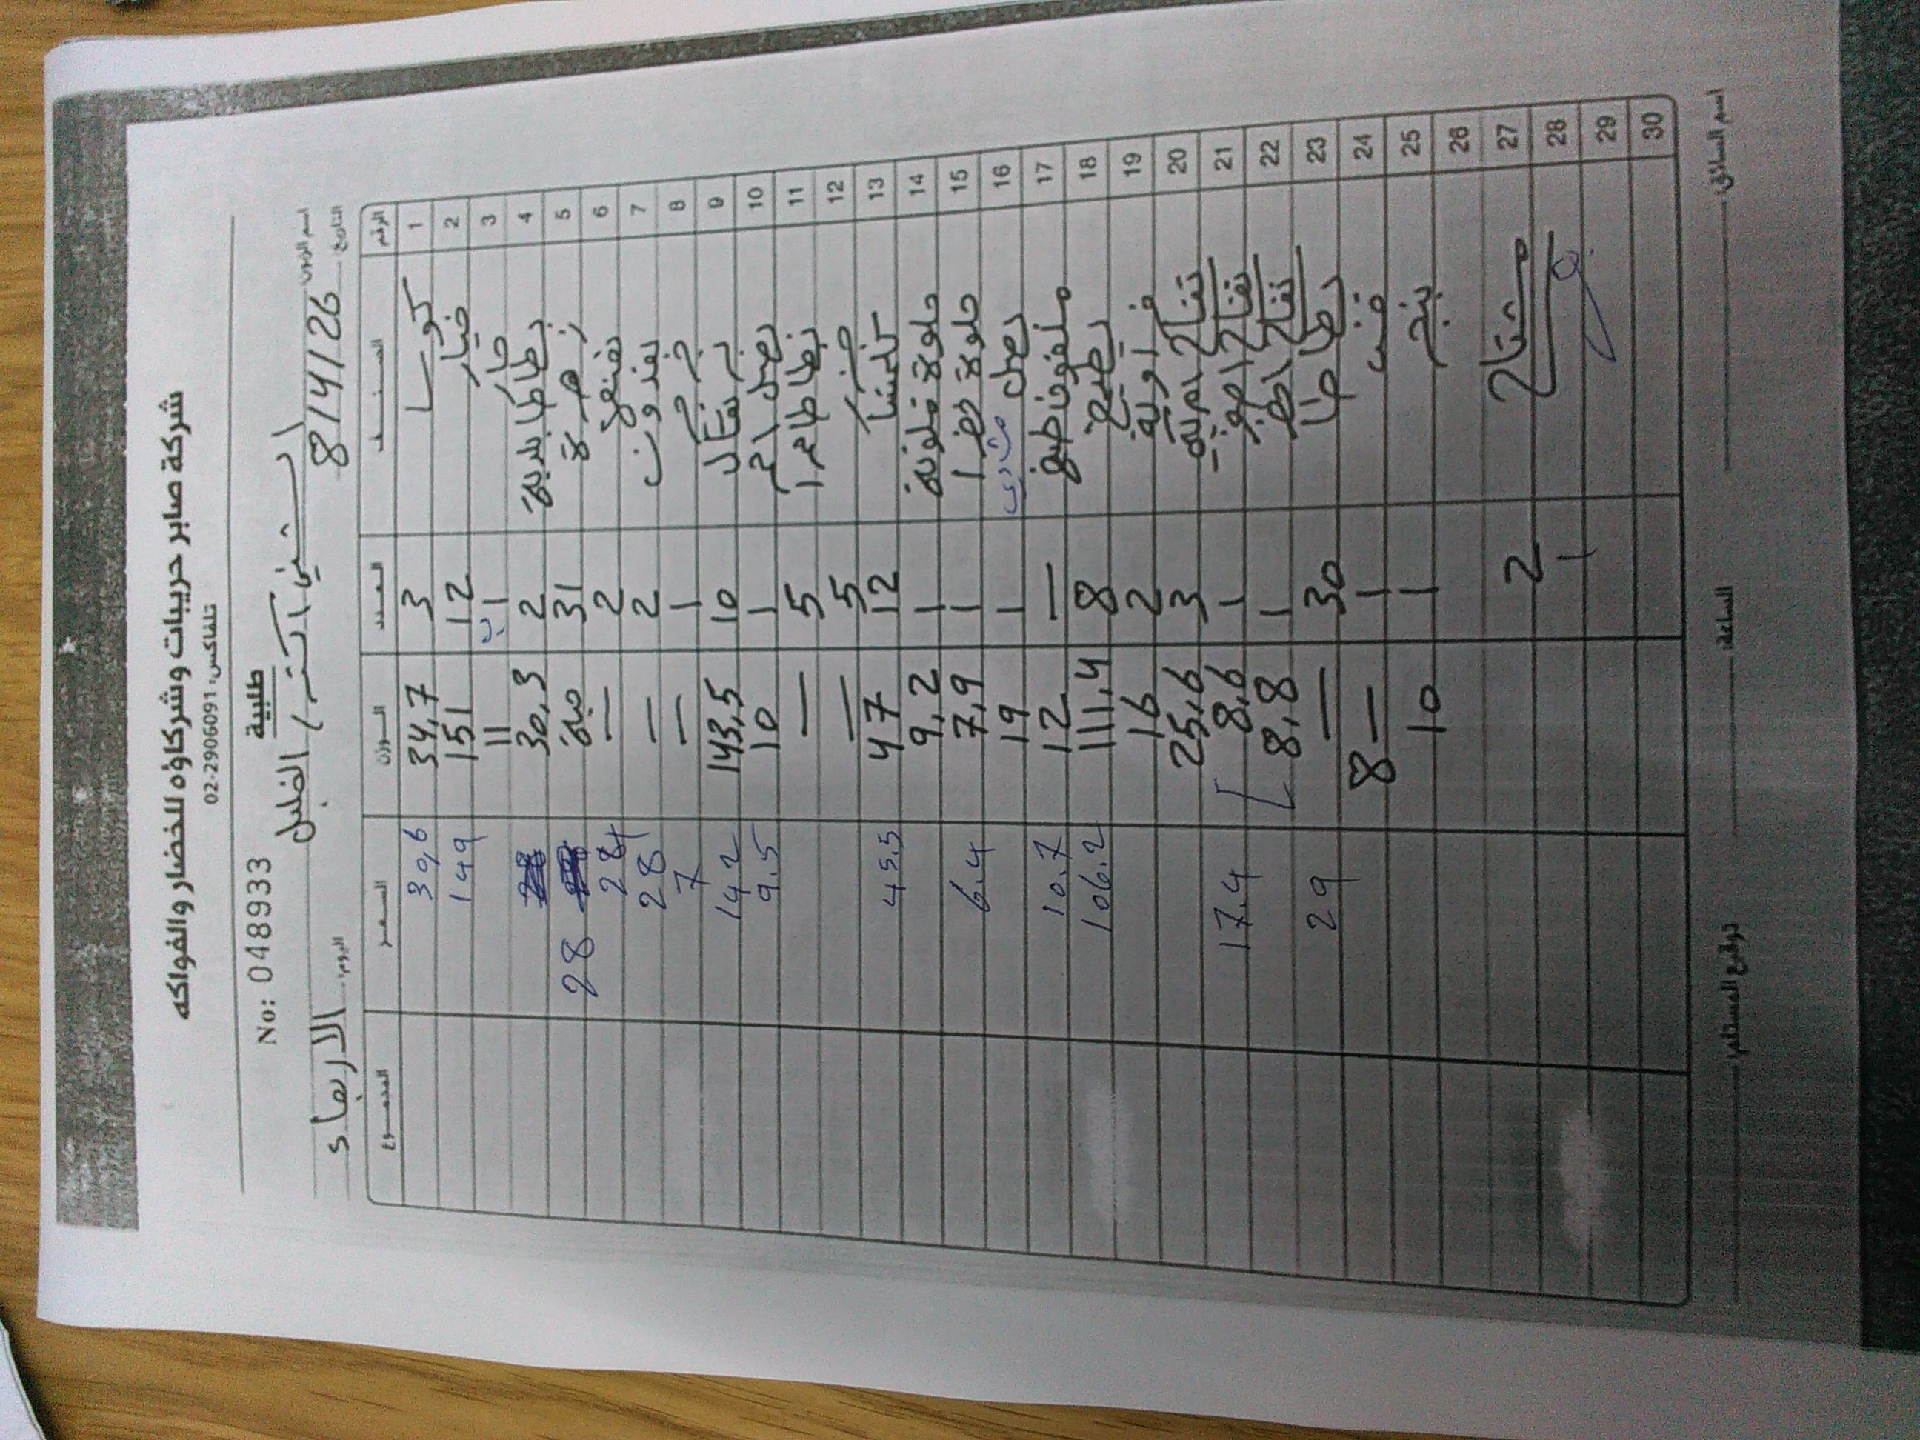 شركة صابر حريبات وشركاؤه للخضار والفواكه
تلفاكس: 02-2906091
طلبية
No: 0489933
اسم الزبون الخليل
اليوم: الاربعاء التاريخ 8/4/26
الرقم الصنف العدد الوزن السعر المجموع
1 كوسا 3 34,7 30,6
2 خيار 12 151 149
3 حار 1 11
4 بطاطا بلدية 2 30,3
5 زهرة 31 حبة 28
6 نعنع 2 — 28
7 بقدونس 2 — 28
8 1 — 7
9 برتقال 10 143,5 142
10 بصل احمر 1 10 9.5
11 بطاطا حمرا 5 —
12 جزر 5 —
13 كلمنتينا 12 47 45.5
14 حلوة ملونة 1 9,2
15 حلوة خضرا 1 7,9 6.4
16 بصل 1 19
17 ملفوف — 12 10.7
18 بطيخ 8 111,4 106.2
19 فراولة 2 16
20 تفاح 3 25,6
21 تفاح اصفر 1 8,6 17.4
22 تفاح اخضر 1 8,8
23 بطاطا 30 — 29
24 خس 1 8 —
25 1 10
26
27 2
28 1
29
30
اسم السائق: الساعة: توقيع المستلم: